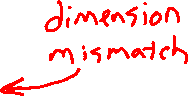 dimension
mismatch